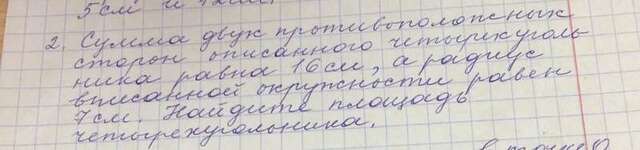 5 см и
2. Сумма двух противоположных
сторон описанного четырехуголь
ника равна 16 см, а радиус
вписанной окружности равен
7 см. Найдите площадь
четырехугольника.
в точке О